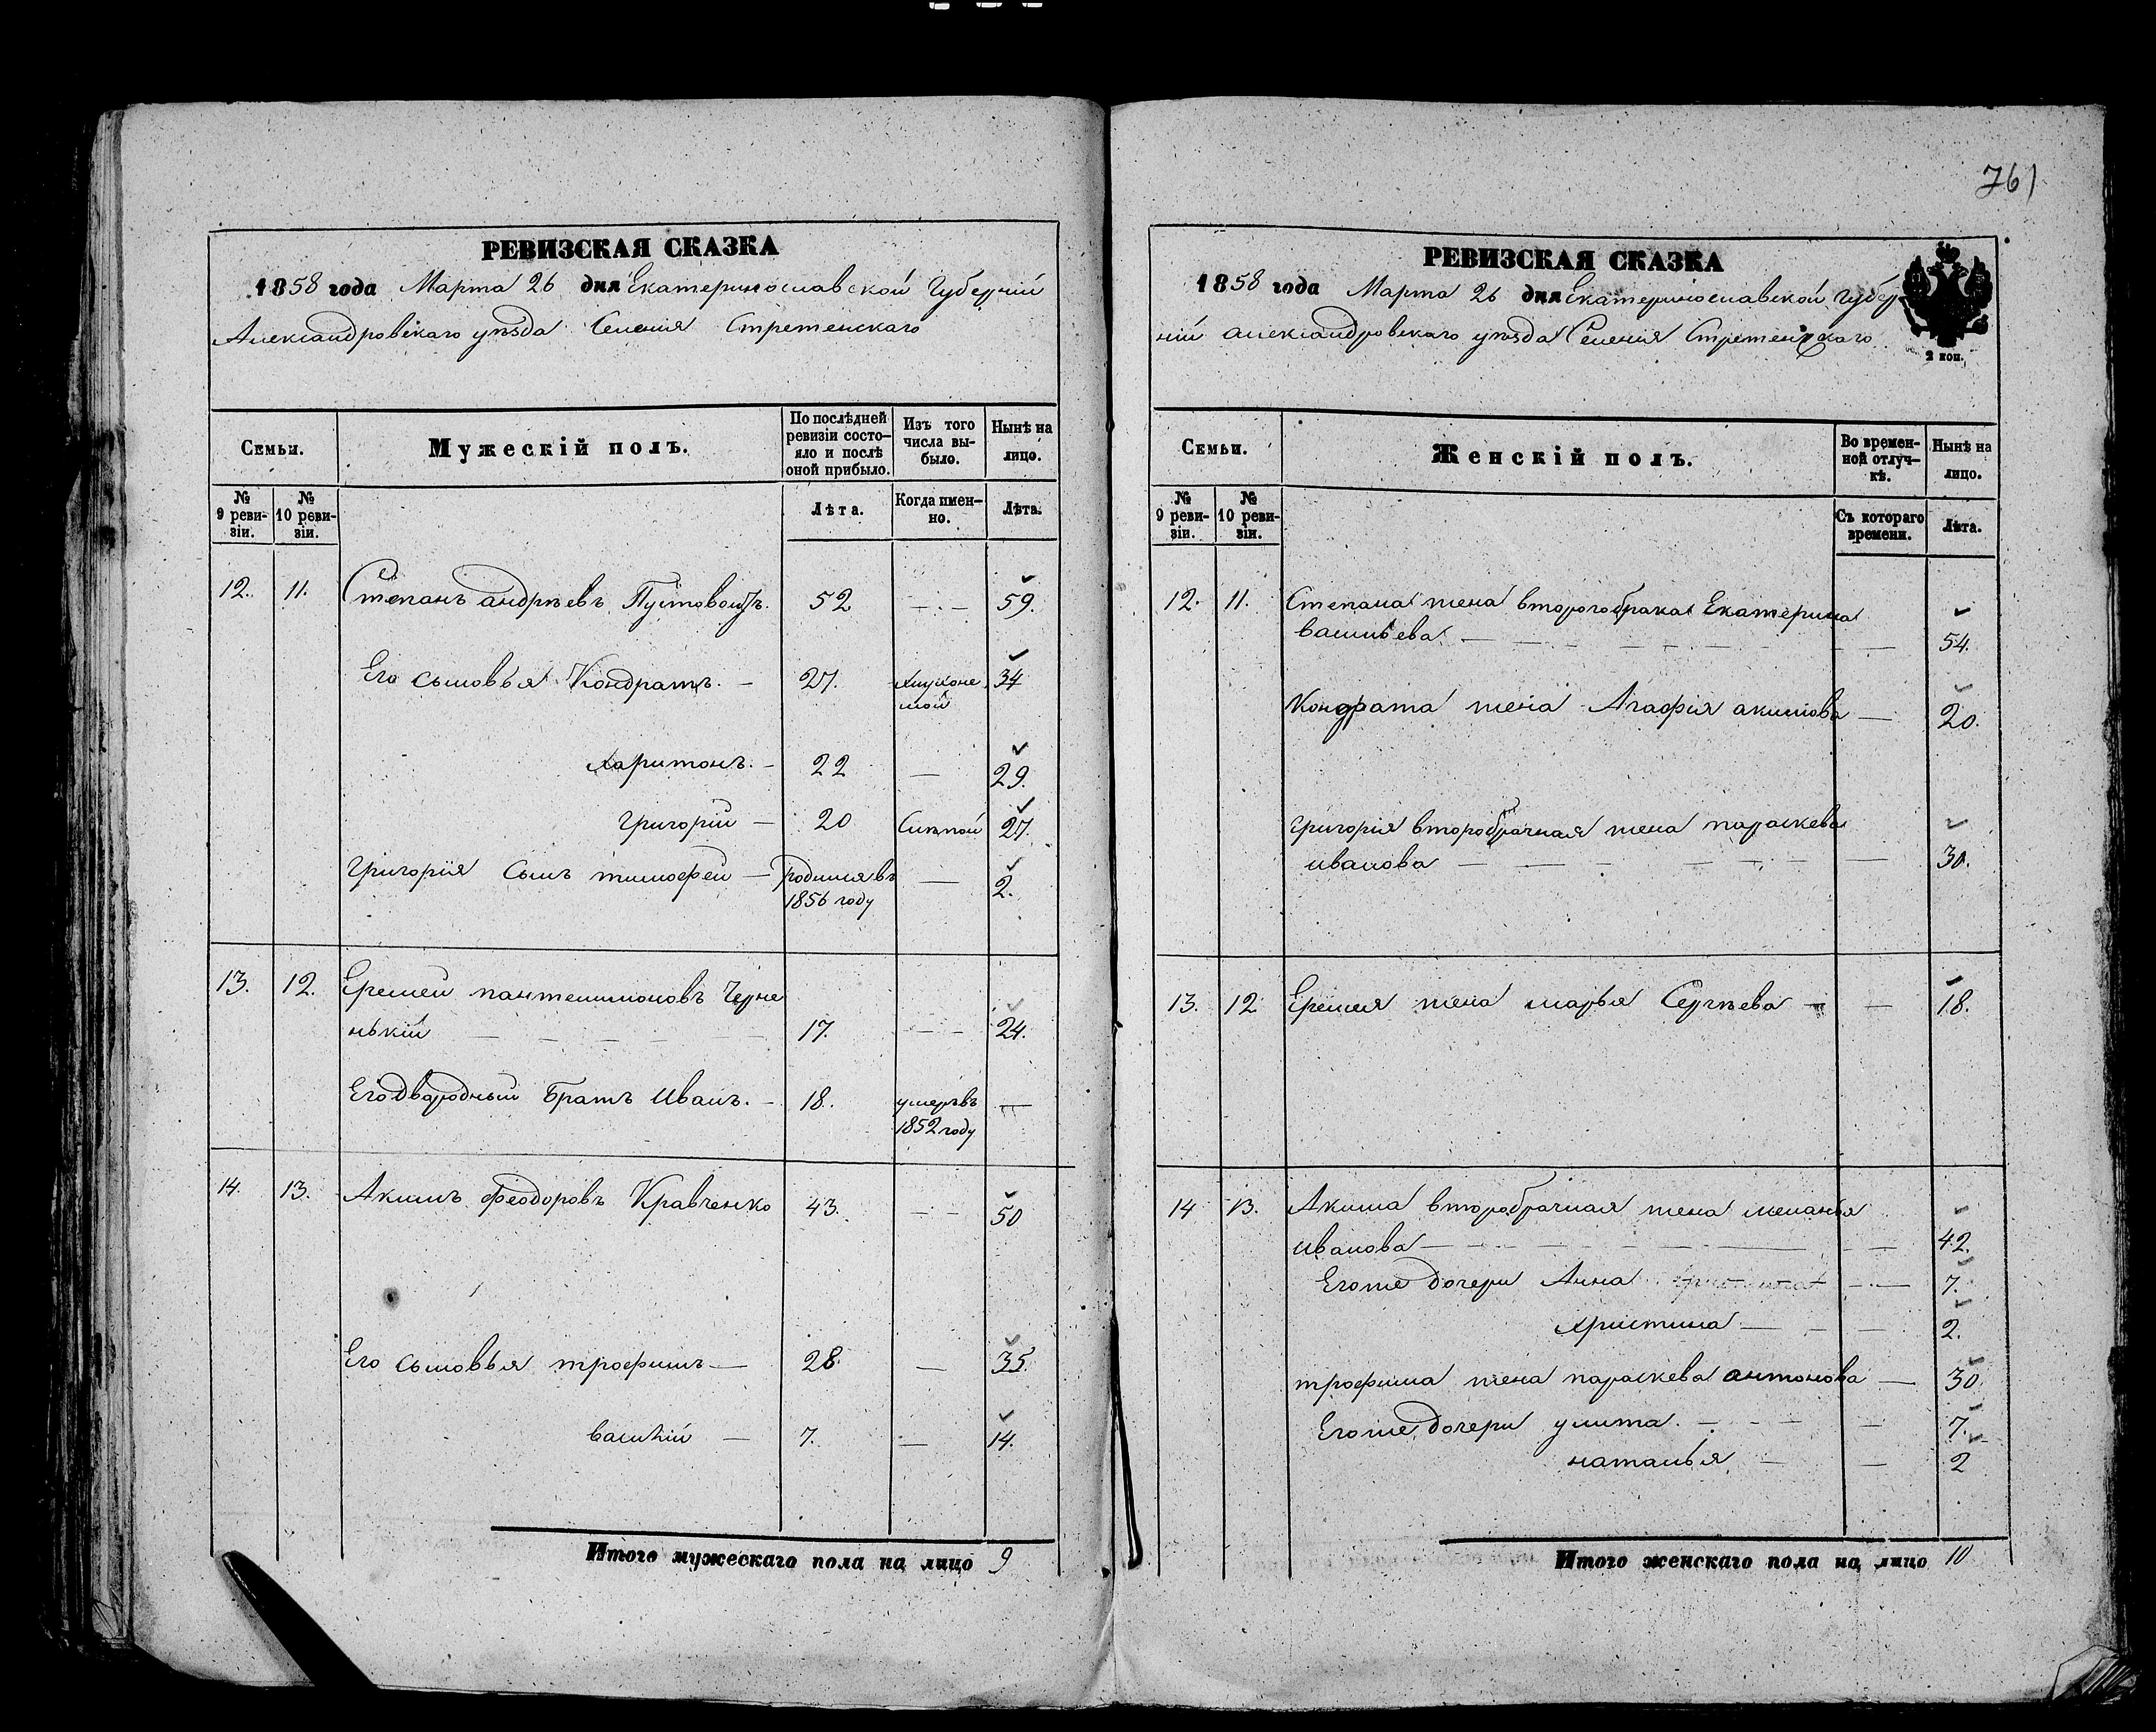 761
РЕВИЗСКАЯ СКАЗКА
1858 года Марта 26 дня Екатеринославской Губерніи
Александровскаго уѣзда Селенія Стретенскаго
Семьи.
Мужескій полъ.
По послѣдней ревизіи состояло и послѣ оной прибыло.
Изъ того числа выбыло.
Нынѣ на лицо.
№ 9 ревизіи.
№ 10 ревизіи.
Лѣта.
Когда именно.
Лѣта.
12. 11. Степанъ андрѣевъ Пустовойтъ. 52 — · — 59.
Его сыновья Кондратъ. — 27. 34
мой
Харитонъ. — 22 — 29.
Григорій — 20 Слѣпой 27.
Григорія сынъ тимофей — родился въ — 2.
1856 году
13. 12. Еремей пантелимоновъ Черне
нькій — 17. — 24.
Его двародный Братъ Иванъ. — 18. умеръ въ —
1852 году
14. 13. Акимъ Феодоровъ Кравченко 43. — · — 50
Его сыновья трофимъ — 28. — 35.
василій — 7. — 14.
Итого мужескаго пола на лицо 9
РЕВИЗСКАЯ СКАЗКА
1858 года Марта 26 дня Екатеринославской Губер
ніи александровскаго уѣзда Селенія Стретенскаго
2 коп.
Семьи.
Женскій полъ.
Во временной отлучкѣ.
Нынѣ на лицо.
№ 9 ревизіи.
№ 10 ревизіи.
Съ котораго времени.
Лѣта.
12. 11. Степана жена второгобрака Екатерина
василъева — 54.
Кондрата жена Агафія акимова — 20.
григорія второбрачная жена параскева
иванова — 30.
13. 12 Еремея жена марья Сергѣева — 18.
14 13. Акима второбрачная жена меланья
иванова — 42.
Егоже дочери Анна — 7.
Христина — 2.
трофима жена параскева антонова — 30.
Егоже дочери улита. — 7.
наталья — 2
Итого женскаго пола на лицо 10